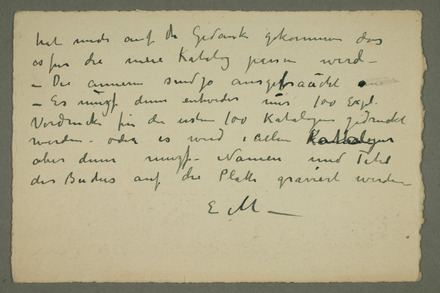 hat mich auf den Gedanken gekommen das
es für die neue Katalog passen wird –
– Die anneren sind ja ausgebraucht
– Es muzf denn entweder nur 100 Expl.
Vordrucke für die ersten 100 Katalogen gedruckt
werden – oder es wird allen
aber denn muzf – Namen und Titel
des Buches auf die Platte graviert werden
E M –